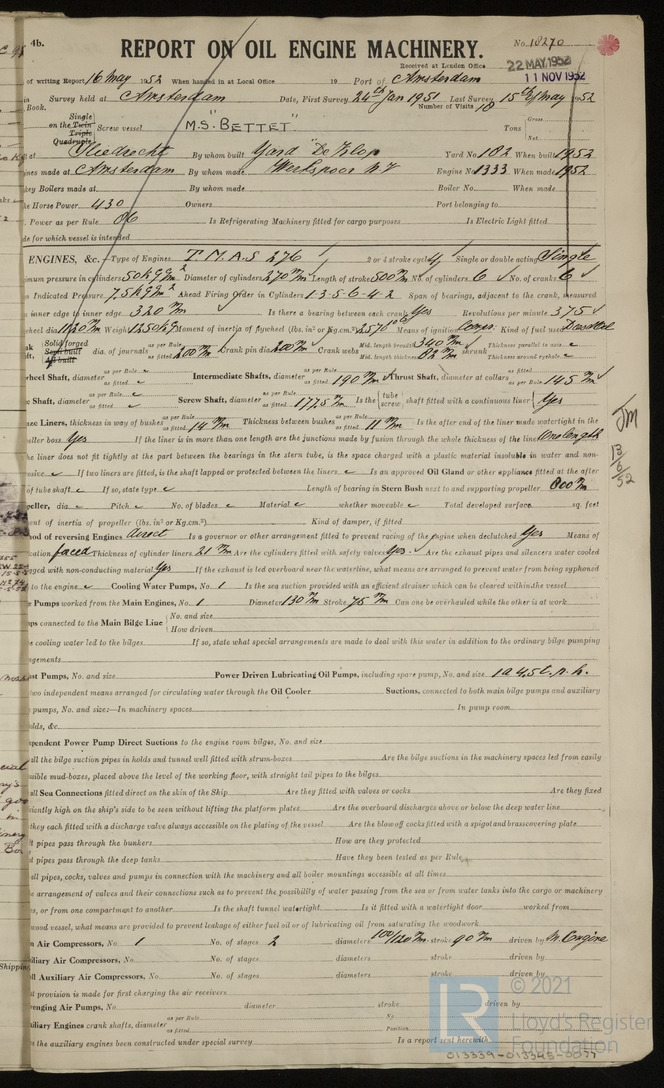 4b.
REPORT ON OIL ENGINE MACHINERY.
No. 18270
Received at London Office
22 MAY 1952
11 NOV 1952
of writing Report 16 May 1952 When handed in at Local Office 19 Port of Amsterdam
in Survey held at Amsterdam Date, First Survey 24th Jan 1951 Last Survey 15th May 1952
Book. Number of Visits 18
Single
on the Twin
Triple
Quadruple
Screw vessel M.S. "BETTET". Tons Gross
Net
at Sliedrecht By whom built Yard "De Klop" Yard No. 182 When built 1952
ines made at Amsterdam By whom made Werkspoor N.V. Engine No. 1333 When made 1952
key Boilers made at By whom made Boiler No. When made
ke Horse Power 430 Owners Port belonging to
Power as per Rule 86 Is Refrigerating Machinery fitted for cargo purposes Is Electric Light fitted
de for which vessel is intended
ENGINES, &c.—Type of Engines T.M.A.S. 276 2 or 4 stroke cycle 4 Single or double acting Single
imum pressure in cylinders 50 kg/cm² Diameter of cylinders 270 m/m Length of stroke 500 m/m No. of cylinders 6 No. of cranks 6
n Indicated Pressure 7,5 kg/cm² Ahead Firing Order in Cylinders 1-3-5-6-4-2 Span of bearings, adjacent to the crank, measured
inner edge to inner edge 320 m/m Is there a bearing between each crank Yes Revolutions per minute 375
wheel dia 1120 m/m Weight 1250 kgs Moment of inertia of flywheel (lbs. in² or Kg.cm.²) Means of ignition Compr. Kind of fuel used
Solid forged
Semi built
All built
dia. of journals as per Rule as fitted 200 m/m Crank pin dia. 200 m/m Crank webs Mid. length breadth 340 m/m Thickness parallel to axis
Mid. length thickness 82 m/m shrunk Thickness around eyehole
wheel Shaft, diameter as per Rule as fitted Intermediate Shafts, diameter as per Rule as fitted 190 m/m Thrust Shaft, diameter at collars as fitted as per Rule 145 m/m
e Shaft, diameter as per Rule as fitted Screw Shaft, diameter as per Rule as fitted 177,5 m/m Is the {tube screw} shaft fitted with a continuous liner Yes
ze Liners, thickness in way of bushes as per Rule as fitted 14 m/m Thickness between bushes as per Rule as fitted 11 m/m Is the after end of the liner made watertight in the
peller boss Yes If the liner is in more than one length are the junctions made by fusion through the whole thickness of the liner One length
he liner does not fit tightly at the part between the bearings in the stern tube, is the space charged with a plastic material insoluble in water and non-
osive If two liners are fitted, is the shaft lapped or protected between the liners Is an approved Oil Gland or other appliance fitted at the after
of tube shaft If so, state type Length of bearing in Stern Bush next to and supporting propeller 800 m/m
peller, dia Pitch No. of blades Material whether moveable Total developed surface sq. feet
ent of inertia of propeller (lbs. in² or Kg.cm.²) Kind of damper, if fitted
od of reversing Engines direct Is a governor or other arrangement fitted to prevent racing of the engine when declutched Yes Means of
ation forced Thickness of cylinder liners 21 m/m Are the cylinders fitted with safety valves Yes Are the exhaust pipes and silencers water cooled
gged with non-conducting material Yes If the exhaust is led overboard near the waterline, what means are arranged to prevent water from being syphoned
to the engine Cooling Water Pumps, No. 1 Is the sea suction provided with an efficient strainer which can be cleared within the vessel
e Pumps worked from the Main Engines, No. 1 Diameter 130 m/m Stroke 75 m/m Can one be overhauled while the other is at work
ps connected to the Main Bilge Line {No. and size
How driven
e cooling water led to the bilges If so, state what special arrangements are made to deal with this water in addition to the ordinary bilge pumping
ngements
ast Pumps, No. and size Power Driven Lubricating Oil Pumps, including spare pump, No. and size 1 a 4,5 t.p.h.
two independent means arranged for circulating water through the Oil Cooler Suctions, connected to both main bilge pumps and auxiliary
pumps, No. and size:—In machinery spaces In pump room
olds, &c.
ependent Power Pump Direct Suctions to the engine room bilges, No. and size
all the bilge suction pipes in holds and tunnel well fitted with strum-boxes Are the bilge suctions in the machinery spaces led from easily
ssible mud-boxes, placed above the level of the working floor, with straight tail pipes to the bilges
all Sea Connections fitted direct on the skin of the Ship Are they fitted with valves or cocks Are they fixed
iciently high on the ship's side to be seen without lifting the platform plates Are the overboard discharges above or below the deep water line
they each fitted with a discharge valve always accessible on the plating of the vessel Are the blow off cocks fitted with a spigot and brass covering plate
t pipes pass through the bunkers How are they protected
t pipes pass through the deep tanks Have they been tested as per Rule
all pipes, cocks, valves and pumps in connection with the machinery and all boiler mountings accessible at all times
e arrangement of valves and their connections such as to prevent the possibility of water passing from the sea or from water tanks into the cargo or machinery
s, or from one compartment to another Is the shaft tunnel watertight Is it fitted with a watertight door worked from
wood vessel, what means are provided to prevent leakage of either fuel oil or of lubricating oil from saturating the woodwork
n Air Compressors, No. 1 No. of stages 2 diameters 100/120 m/m stroke 90 m/m driven by M. Engine
iliary Air Compressors, No. No. of stages diameters stroke driven by
ll Auxiliary Air Compressors, No. No. of stages diameters stroke driven by
t provision is made for first charging the air receivers
enging Air Pumps, No. diameter stroke driven by
iliary Engines crank shafts, diameter as per Rule as fitted No. Position
e the auxiliary engines been constructed under special survey Is a report sent herewith
JM
13/6/52
© 2021
Lloyd's Register
Foundation
013339-013345-0077